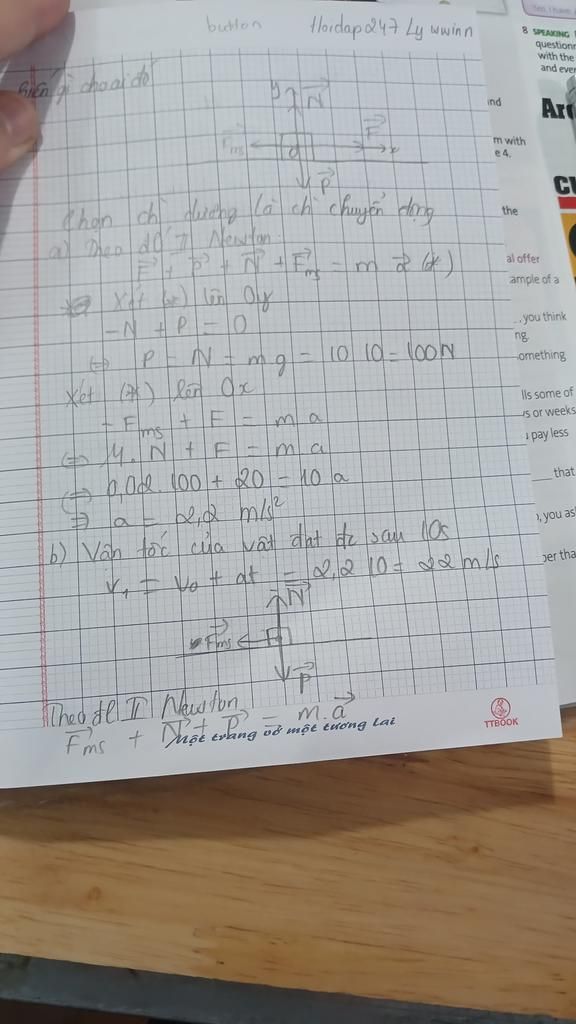 button Hoidap247 Ly wwinn
cho ai đó
y N
Fms F
O x
P
Chọn chiều dương là chiều chuyển động
a) Theo đl II Newton:
F + P + N + Fms = m a (*)
Xét (*) lên Oy
-N + P = 0
⇔ P = N = mg = 10.10 = 100N
Xét (*) lên Ox
-Fms + F = m a
⇔ μ.N + F = m a
⇔ 0,02.100 + 20 = 10 a
⇒ a = 2,2 m/s²
b) Vận tốc của vật đạt đc sau 10s
v₁ = v₀ + at = 2,2.10 = 22 m/s
N
Fms
P
Theo đl II Newton
Fms + N + P = m.a
Một trang vở một tương lai
TTBOOK
8 SPEAKING
question
with the
and ever
nd
m with
e 4.
the
al offer
ample of a
you think
ng.
omething
lls some of
rs or weeks
pay less
that
, you as
per tha